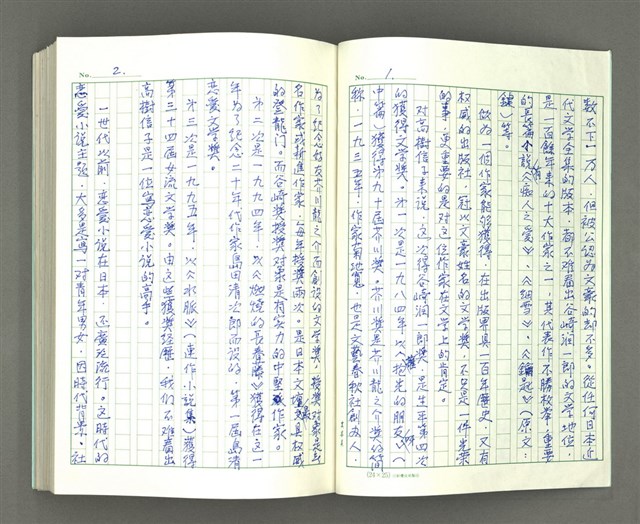 No. 1.
數不下一万人，但被公認為文豪的卻不多。從任何日本近
代文学全集的版本，都不难看出谷崎潤一郎的文学地位，
是一百餘年來的十大作家之一，其代表作不勝枚舉，重要
的長篇小説有《痴人之愛》、《細雪》、《鑰匙》（原文：
鍵）等。
做為一個作家能够獲得，在出版界具一百年歷史，又有
权威的出版社，冠以文豪姓名的文学獎，不只是一件光榮
的事，更重要的是对这位作家在文学上的肯定。
对高樹信子來説，这次得谷崎潤一郎獎，是生平第四次
的獲得文学獎。第一次是一九八四年，以《擁抱光的朋友》（
中篇）獲得第九十屆芥川獎。芥川獎是芥川龍之介獎的简
称，一九三五年，作家菊地寬，也是文藝春秋社創办人，
(24×25)
No. 2.
为了紀念好友芥川龍之介而創設的文学獎，授獎对象是无
名作家或新進作家，每年授獎兩次。是日本文壇最具权威
的登龍门。而谷崎獎授獎对象是有实力的中堅作家。
第二次是一九九四年，以《燃燒的長春藤》獲得在这一
年为了紀念二十年代作家島田清次郎而設的，第一屆島清
恋爱文学獎。
第三次是一九九五年，以《水脈》（連作小説集）獲得
第三十四屆女流文学獎。由这些獲獎經歷，我们不难看出
高樹信子是一位寫恋爱小説的高手。
一世代以前，恋爱小説在日本，还蛮流行。这時代的
恋爱小説主張，大多是寫一对青年男女，因時代背景、社